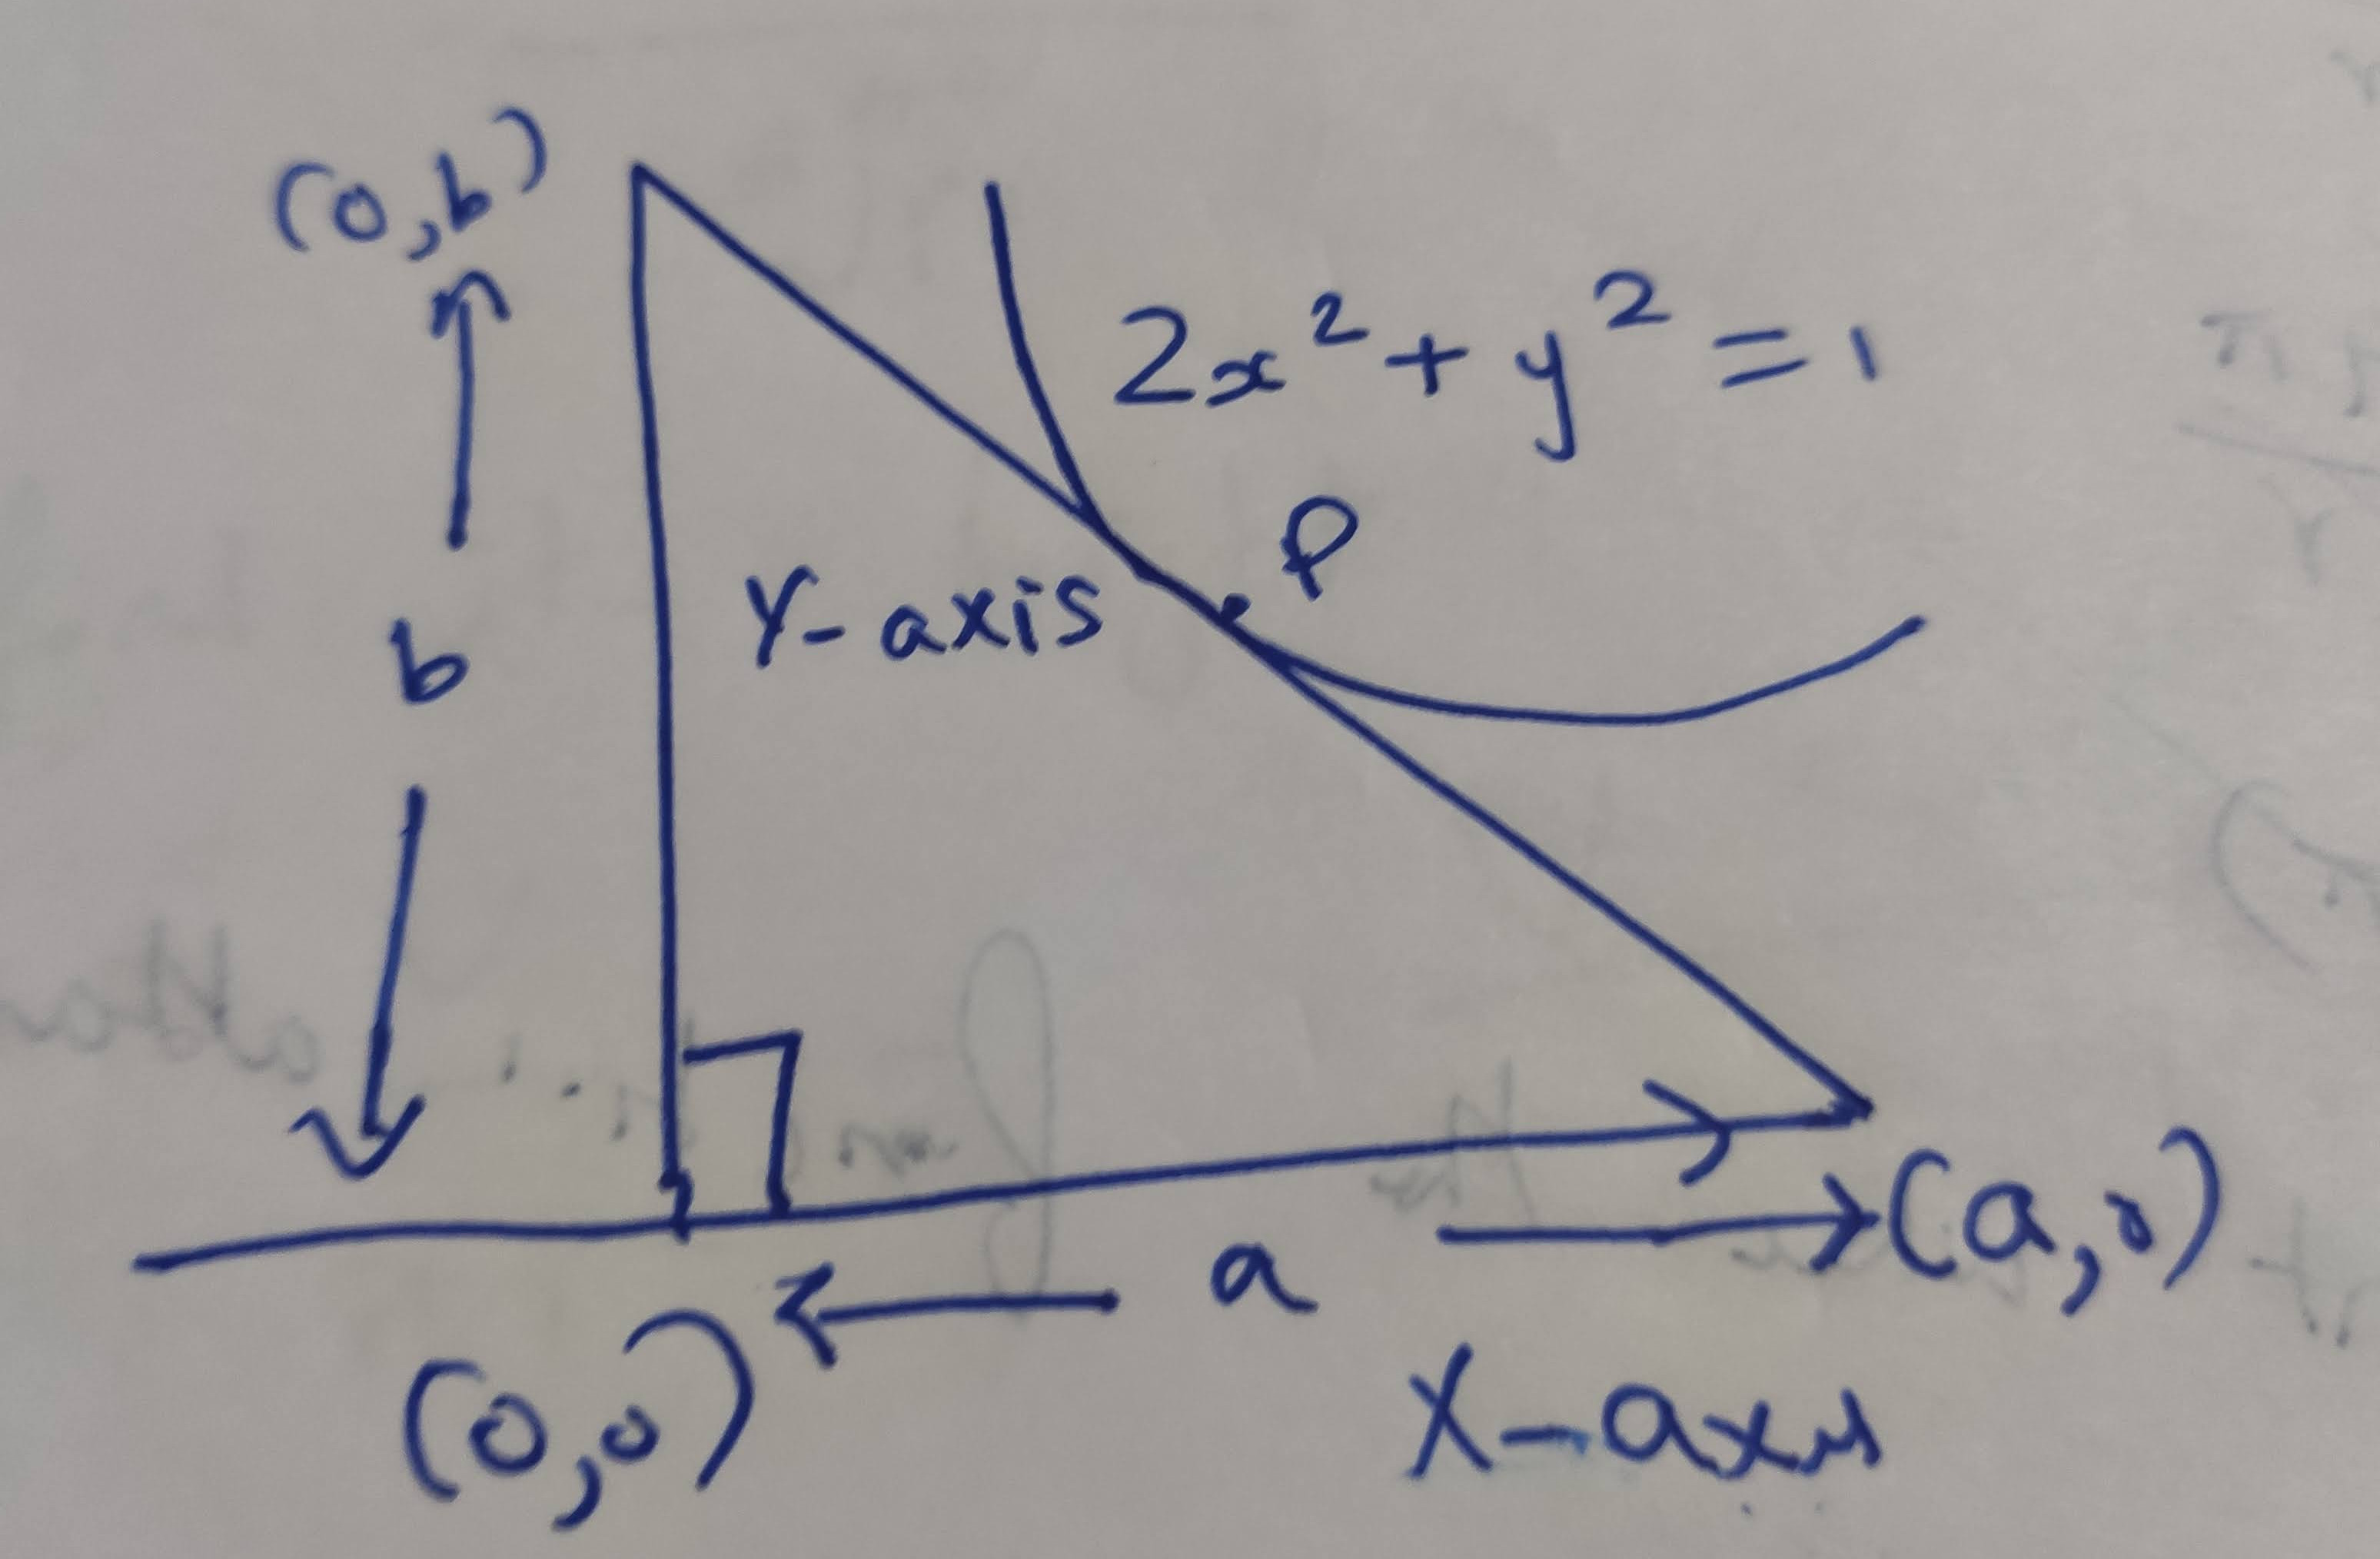 (0,b)
2x² + y² = 1
P
Y-axis
b
(a,0)
a
(0,0)
X-axis